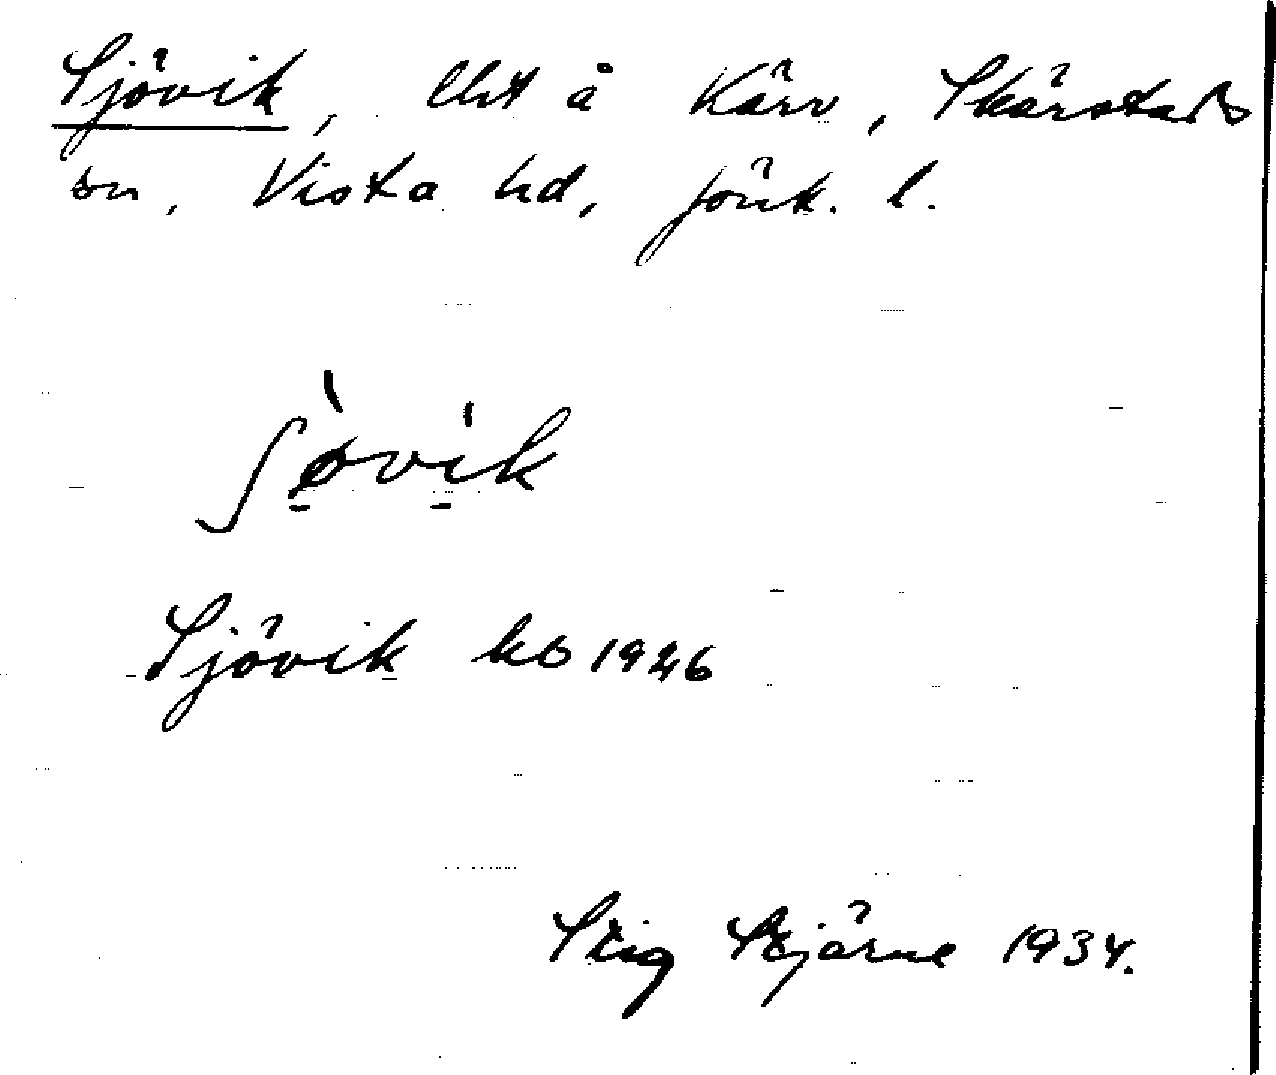 Sjövik, lht å Kärr, Skärstads
sn, Vista hd, Jönk. l.
ʃøvik
Sjövik kb 1926
Stig Stjärne 1934.